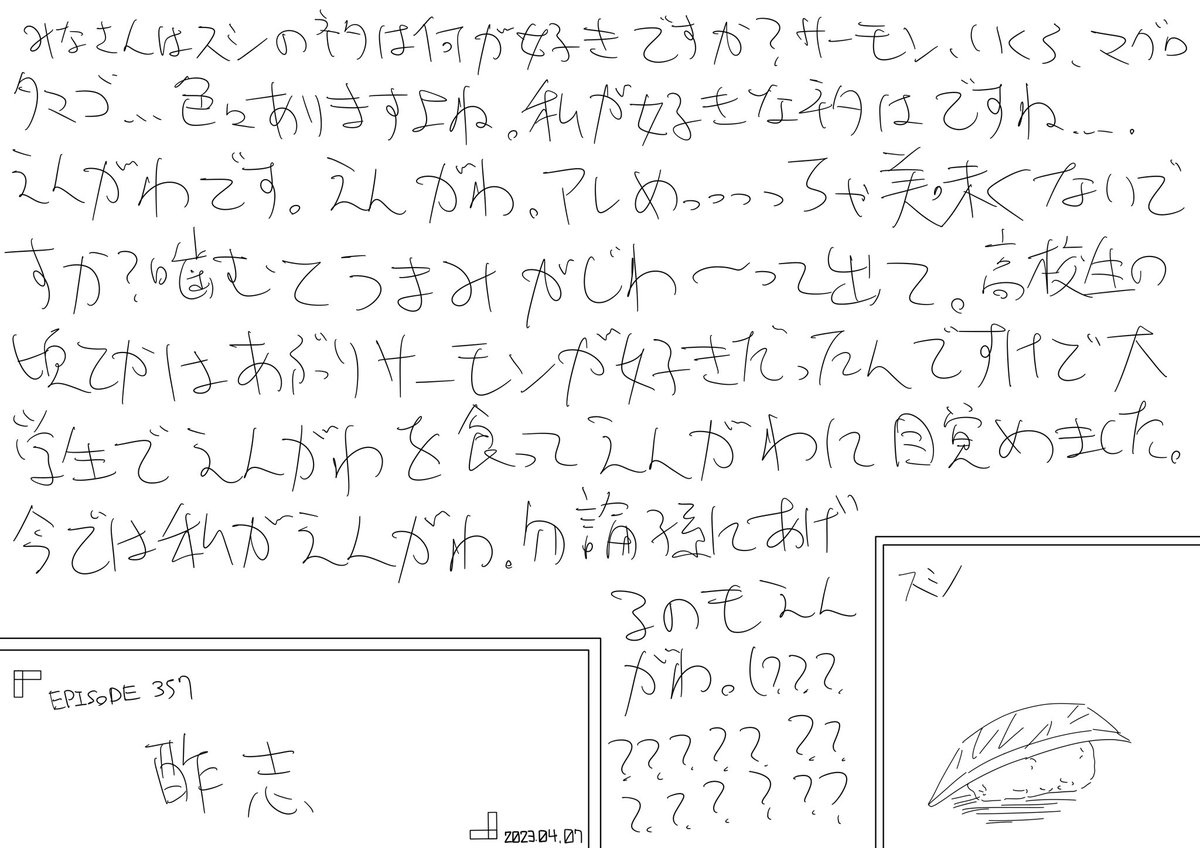 みなさんはスシのネタは何が好きですか?サーモン、いくら、マグロ
タマゴ... 色々ありますよね。私が好きなネタはですね....
えんがわです。えんがわ。アレめっっっっちゃ美味くないで
すか?噛むてうまみがじわ〜って出て。高校生の
頃てかはあぶりサーモンが好きだったんですけで大
学生でえんがわを食ってえんがわに目覚めました。
今では私がえんがわ。勿論孫にあげ
るのもえん
がわ。(???
???????
??????
EPISODE 357
酢志
2023.04.07
スシ